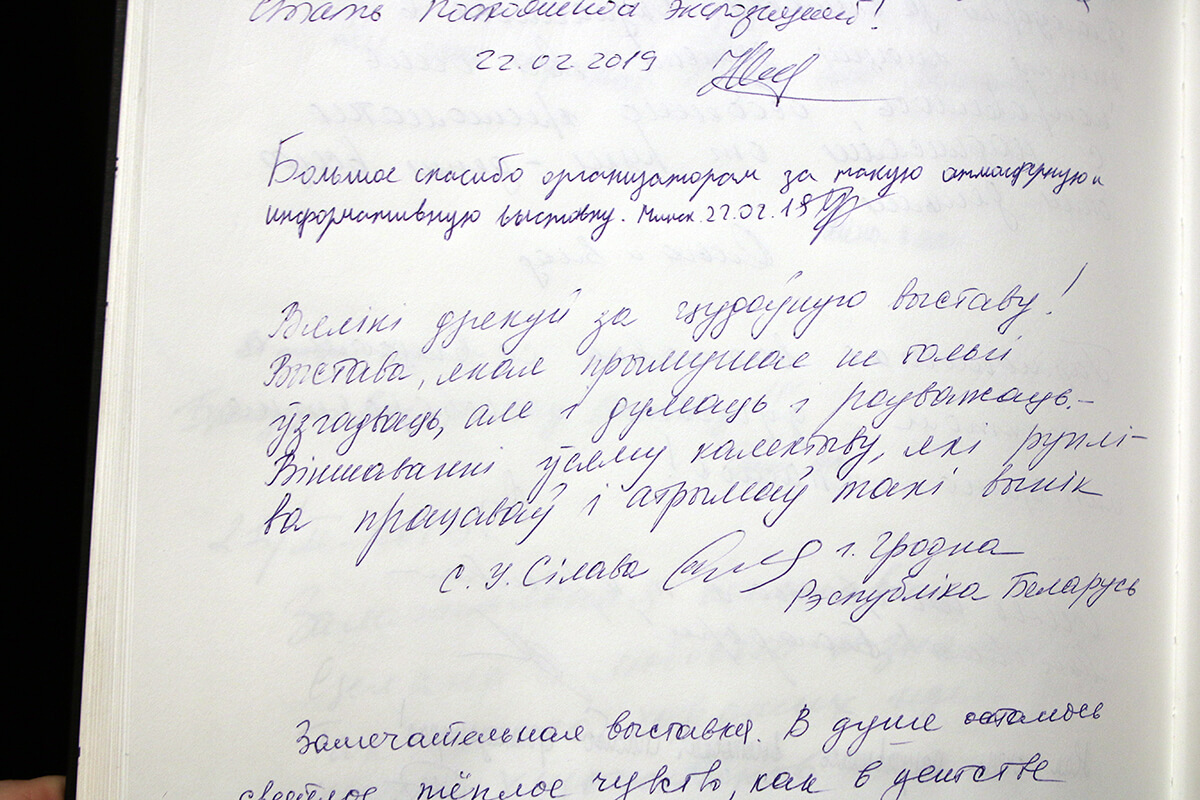 стать постоянной экспозицией!
22.02.2019
Большое спасибо организаторам за такую атмосферную и
информативную выставку. Минск 22.02.19
Вялікі дзякуй за цудоўную выставу!
Выстава, якая прымушае не толькі
ўзгадваць, але і думаць і разважаць.-
Віншаванні ўсяму калектыву, які руплі-
ва працаваў і атрымаў такі вынік
С. У. Сілава г. Гродна
Рэспубліка Беларусь
Замечательная выставка. В душе осталось
светлое тёплое чувство, как в детстве